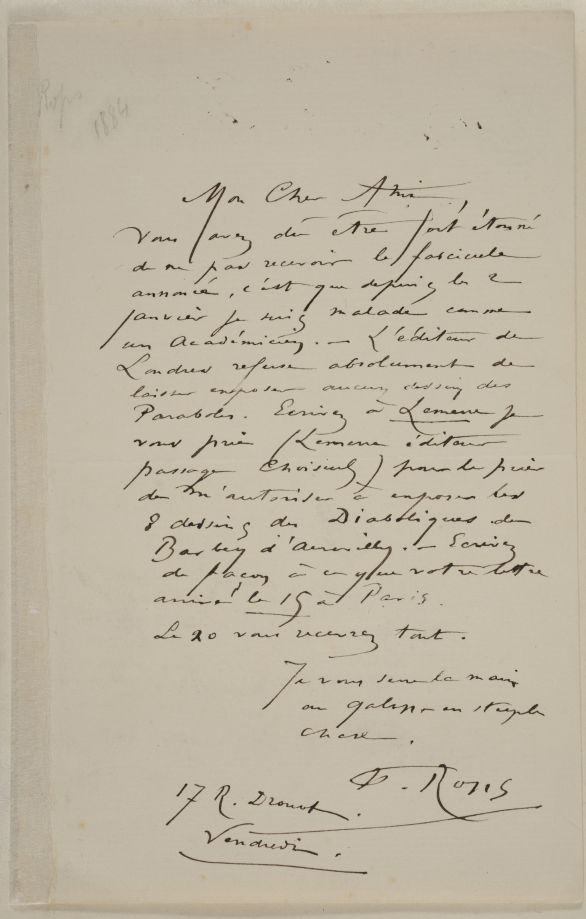 Rops
1884
Mon Cher Ami,
Vous avez dû être fort étonné
de ne pas recevoir le fascicule
annoncé, c'est que depuis le 2
janvier je suis malade comme
un Académicien. – L'éditeur de
Londres refuse absolument de
laisser exposer aucun dessin des
Paraboles. Ecrivez à Lemerre je
vous prie (Lemerre éditeur
passage Choiseul) pour le prier
de m'autoriser à exposer les
8 dessins des Diaboliques de
Barbey d'Aurevilly. – Ecrivez
de façon à ce que votre lettre
arrive le 15 à Paris.
Le 20 vous recevrez tout.
Je vous serre la main
au galop – en steeple
chase.
F. Rops
17 R. Drouot.
Vendredi.